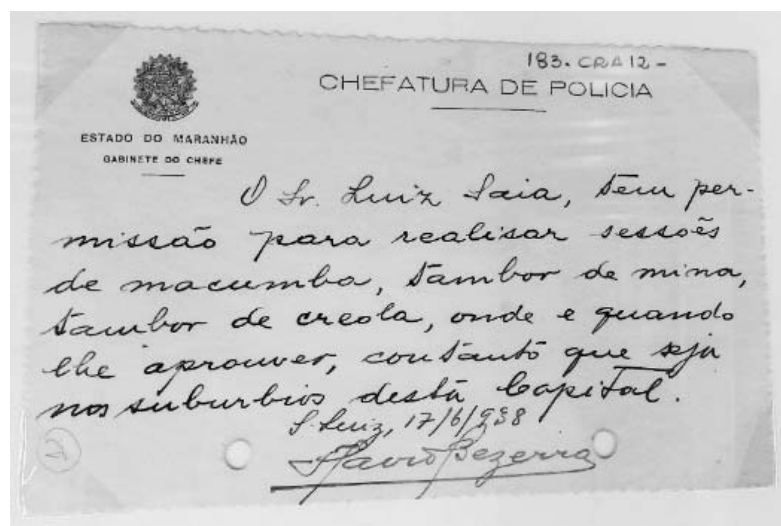 183. CRA12-
CHEFATURA DE POLICIA
ESTADO DO MARANHÃO
GABINETE DO CHEFE
O Sr. Luiz Saia, tem per-
missão para realisar sessões
de macumba, tambor de mina,
tambor de creola, onde e quando
lhe aprouver, contanto que seja
nos suburbios desta Capital.
S. Luiz, 17/6/938
Flavio Bezerra